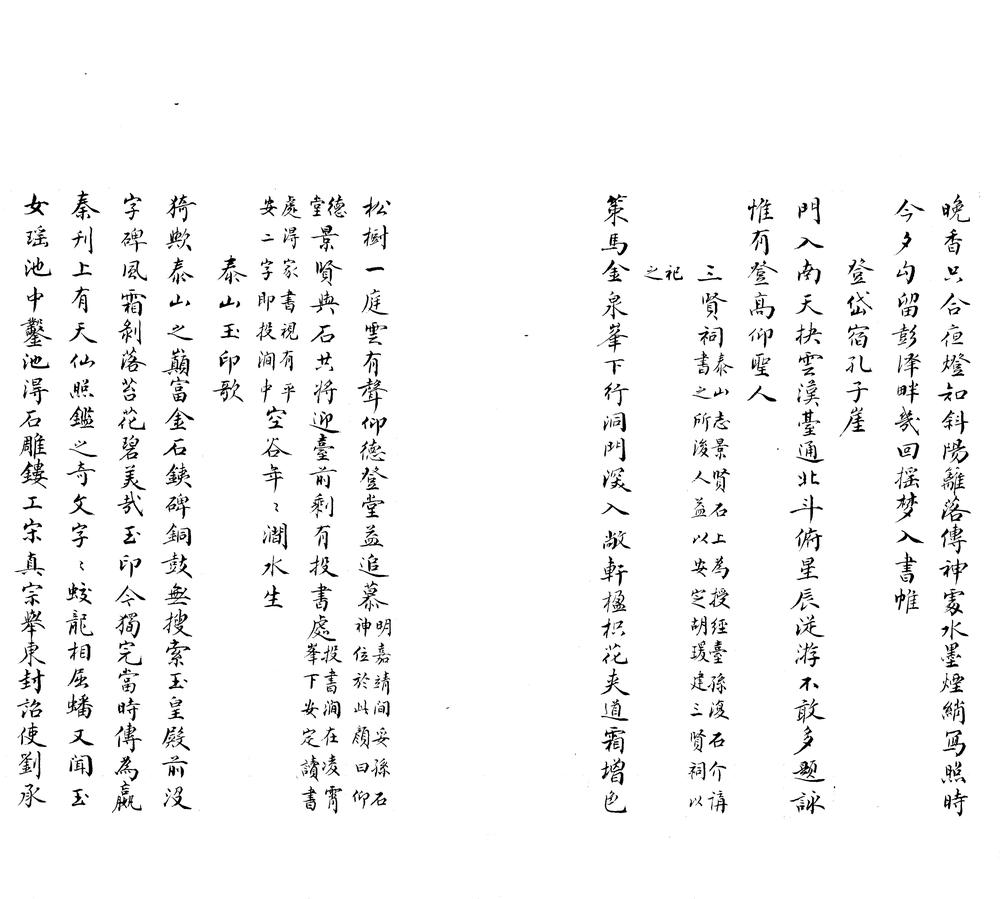 晚香只合夜燈知斜陽籬落傳神處水墨煙綃寫照時
今夕勾留彭澤畔幾回摇梦入書帷
登岱宿孔子崖
門入南天抉雲漢臺通北斗俯星辰從游不敢多題詠
惟有登高仰聖人
三賢祠泰山志景賢石上為授經臺孫復石介講
書之所後人益以安定胡瑗建三賢祠以
祀
之
策馬金泉峯下行洞門深入敞軒楹枳花夹道霜增色
松樹一庭雲有聲仰德登堂益追慕明嘉靖間妥孫石
神位於此顏曰仰
德
堂景賢與石共將迎臺前剩有投書處投書澗在凌霄
峯下安定讀書
處得家書視有平
安二字即投澗中空谷年〻澗水生
泰山玉印歌
猗歟泰山之巔富金石鐵碑銅鼓無搜索玉皇殿前没
字碑風霜剝落苔花碧美哉玉印今獨完當時傳為嬴
秦刊上有天仙照鑑之奇文字〻蛟龍相屈蟠又聞玉
女瑶池中鑿池得石雕鏤工宋真宗舉東封詔使劉承